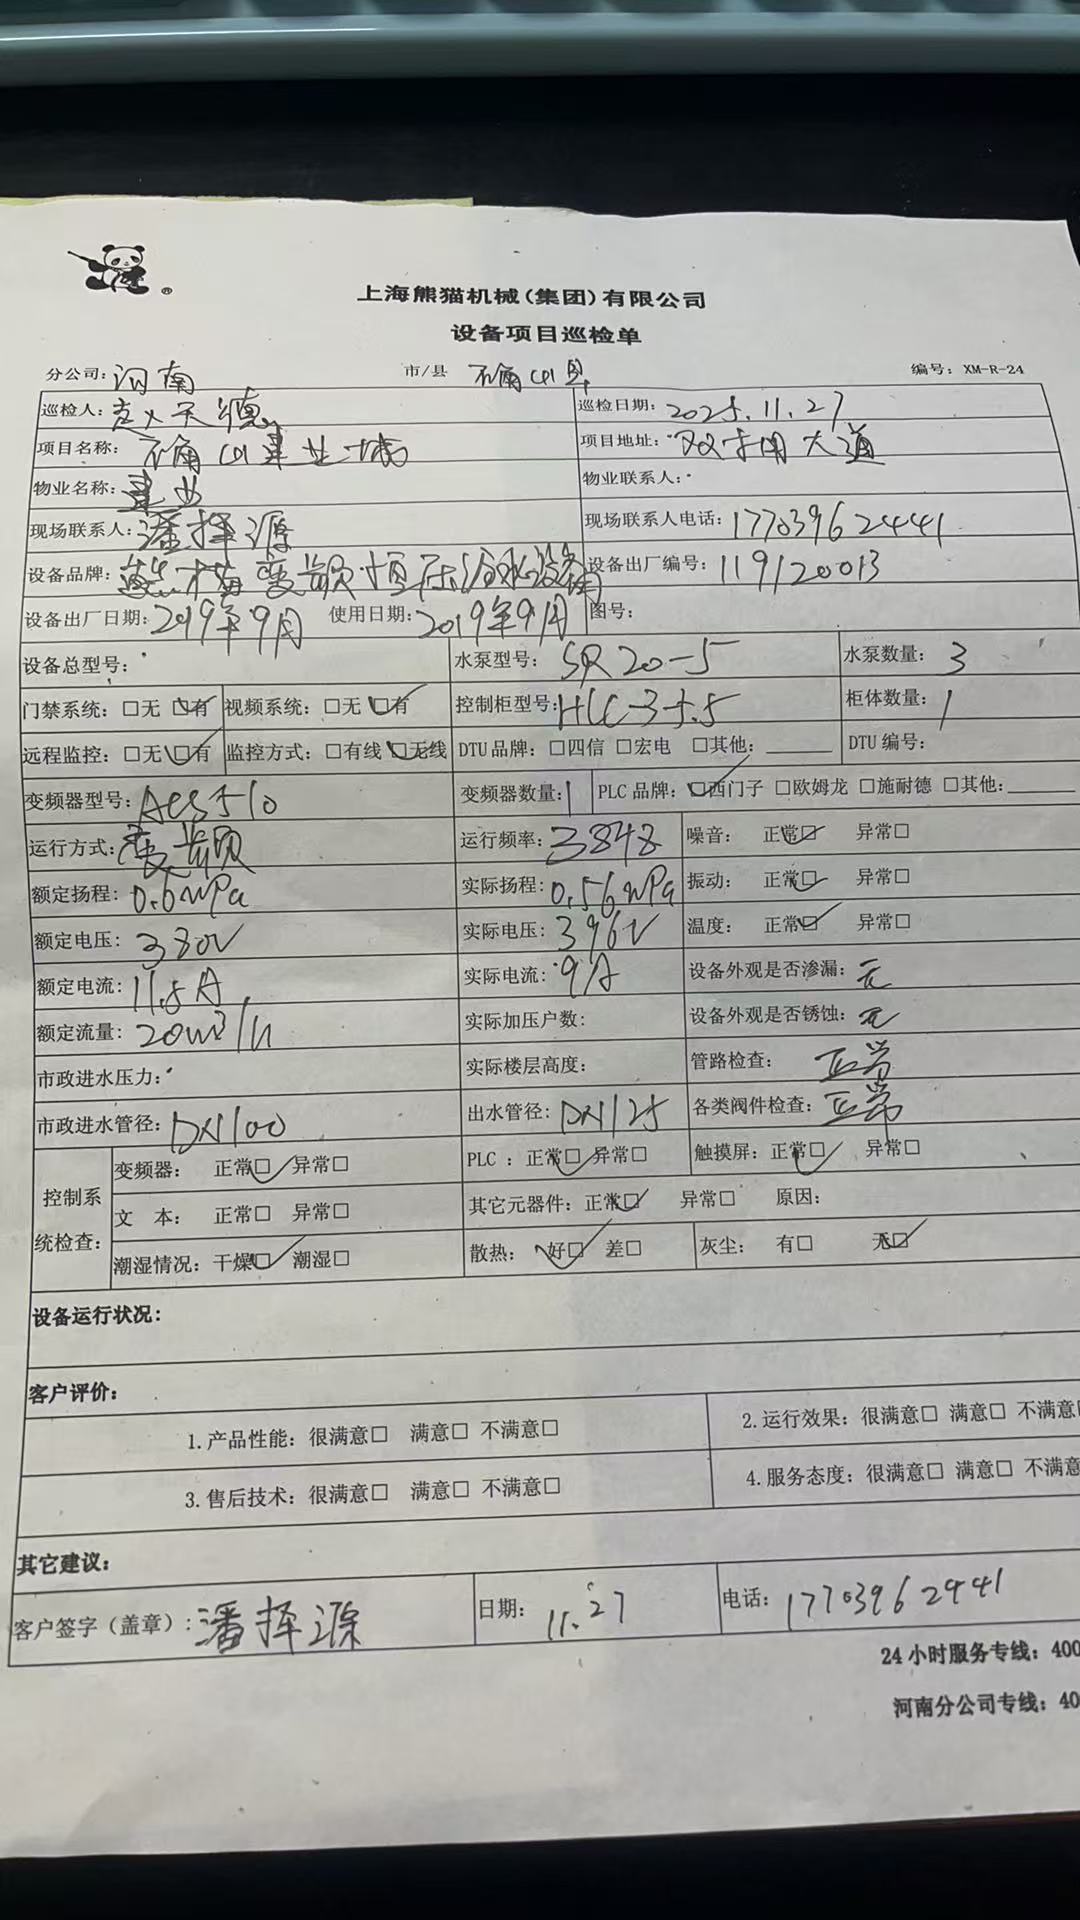 上海熊猫机械(集团)有限公司
设备项目巡检单
分公司：河南 市/县 确山县 编号：XM-R-24
巡检人：赵天德 巡检日期：2025.11.27
项目名称：确山建业城 项目地址：大道
物业名称：建业 物业联系人：
现场联系人：潘择源 现场联系人电话：17703962441
设备品牌：熊猫变频恒压给水设备 设备出厂编号：119120013
设备出厂日期：2019年9月 使用日期：2019年9月 图号：
设备总型号： 水泵型号：SR20-5 水泵数量：3
门禁系统：□无 ☑有 视频系统：□无 ☑有 控制柜型号：HLC-3-5.5 柜体数量：1
远程监控：□无 ☑有 监控方式：□有线 ☑无线 DTU品牌：□四信 □宏电 □其他：______ DTU编号：
变频器型号：ACS510 变频器数量：1 PLC品牌：☑西门子 □欧姆龙 □施耐德 □其他：______
运行方式：变频 运行频率：3848 噪音： 正常☑ 异常□
额定扬程：0.6mPa 实际扬程：0.56mPa 振动： 正常☑ 异常□
额定电压：380V 实际电压：396V 温度： 正常☑ 异常□
额定电流：11.5A 实际电流：9A 设备外观是否渗漏：无
额定流量：20m³/h 实际加压户数： 设备外观是否锈蚀：无
市政进水压力： 实际楼层高度： 管路检查：正常
市政进水管径：DN100 出水管径：DN125 各类阀件检查：正常
控制系统检查： 变频器： 正常☑ 异常□ PLC ：正常☑ 异常□ 触摸屏：正常☑ 异常□
文 本： 正常□ 异常□ 其它元器件：正常☑ 异常□ 原因：
潮湿情况：干燥☑ 潮湿□ 散热：好☑ 差□ 灰尘：有□ 无☑
设备运行状况：
客户评价：
1.产品性能：很满意□ 满意□ 不满意□ 2.运行效果：很满意□ 满意□ 不满意□
3.售后技术：很满意□ 满意□ 不满意□ 4.服务态度：很满意□ 满意□ 不满意
其它建议：
客户签字（盖章）：潘择源 日期：11.27 电话：17703962441
24小时服务专线：400
河南分公司专线：40